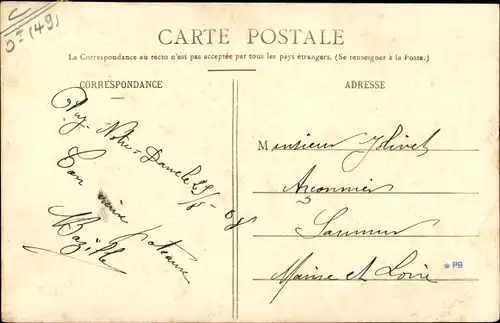 Dt (49)
CARTE POSTALE
La Correspondance au recto n'est pas acceptée par tous les pays étrangers. (Se renseigner à la Poste.)
CORRESPONDANCE
Puy-Notre-Dame le 25/8 08
Bazille
ADRESSE
Monsieur Jolivet
Saumur
Maine et Loire
* PB